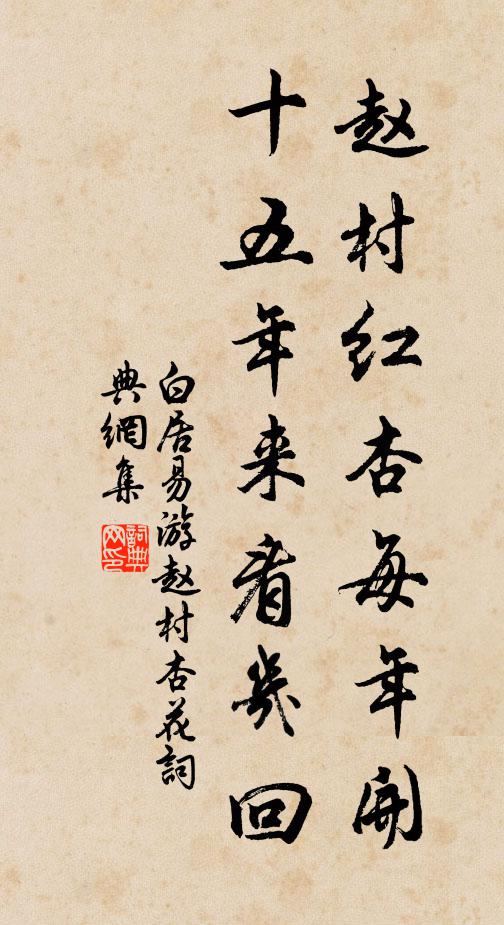 赵村红杏每年開
十五年来看幾回
白居易游赵村杏花詞
典網集
詞典网印